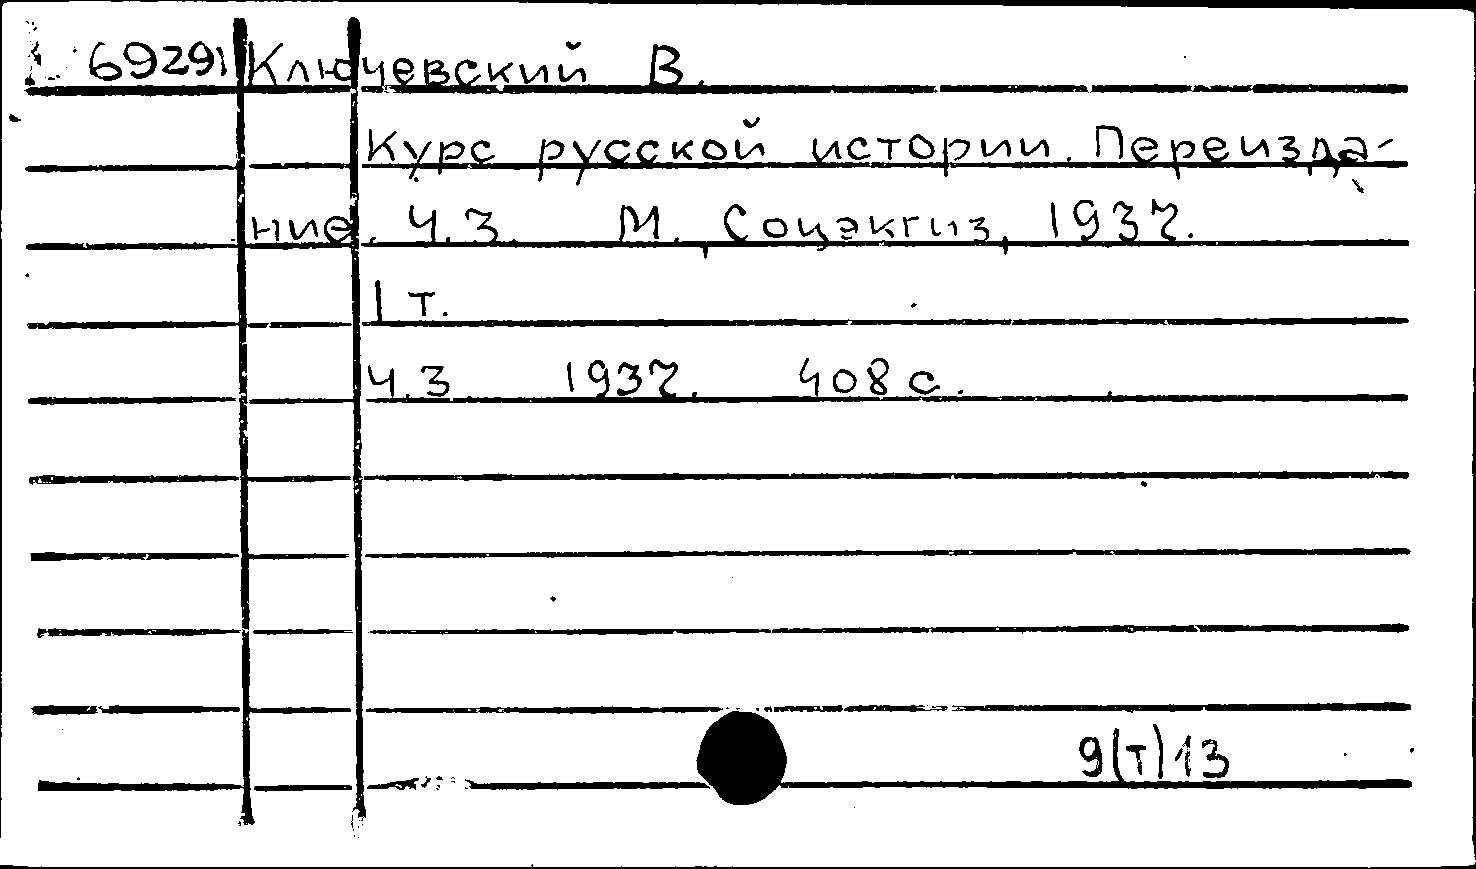 69291 Ключевский В.
Курс русской истории. Переизда-
ние. Ч.3. М., Соцэкгиз, 1937.
1 т.
Ч.3 1937. 408 с.
9(т)13